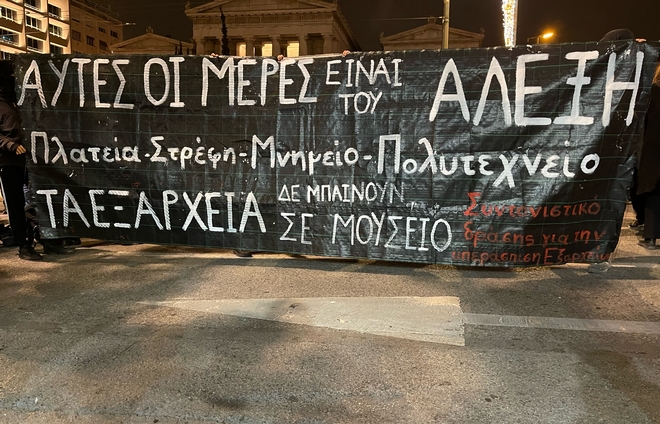 ΑΥΤΕΣ ΟΙ ΜΕΡΕΣ ΕΙΝΑΙ ΤΟΥ ΑΛΕΞΗ
Πλατεία-Στρέφη-Μνημείο-Πολυτεχνείο
ΤΑ ΕΞΑΡΧΕΙΑ ΔΕ ΜΠΑΙΝΟΥΝ ΣΕ ΜΟΥΣΕΙΟ
Συντονιστικό
δράσης για την
υπεράσπιση